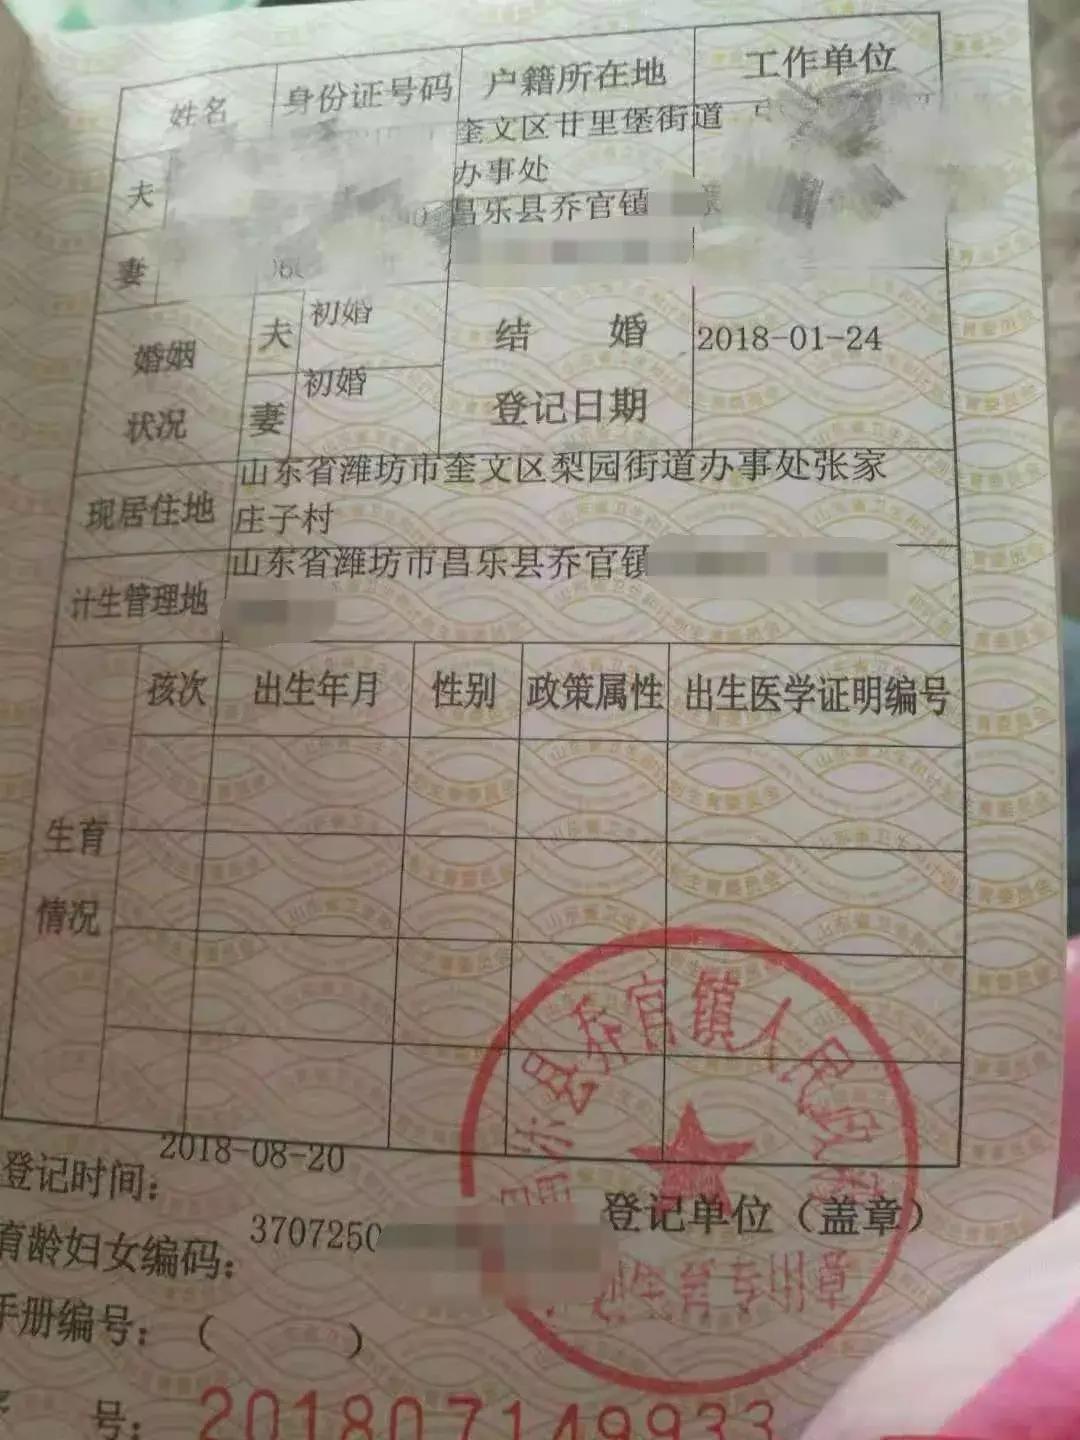 姓名 身份证号码 户籍所在地 工作单位
夫 奎文区廿里堡街道
办事处
妻 昌乐县乔官镇
婚姻
状况 夫 初婚 结 婚
登记日期 2018-01-24
妻 初婚
现居住地 山东省潍坊市奎文区梨园街道办事处张家
庄子村
计生管理地 山东省潍坊市昌乐县乔官镇
孩次 出生年月 性别 政策属性 出生医学证明编号
生育
情况
昌乐县乔官镇人民政府
登记时间: 2018-08-20
登记单位（盖章）
育龄妇女编码: 3707250
生育专用章
手册编号: ( )
号: 201807149933